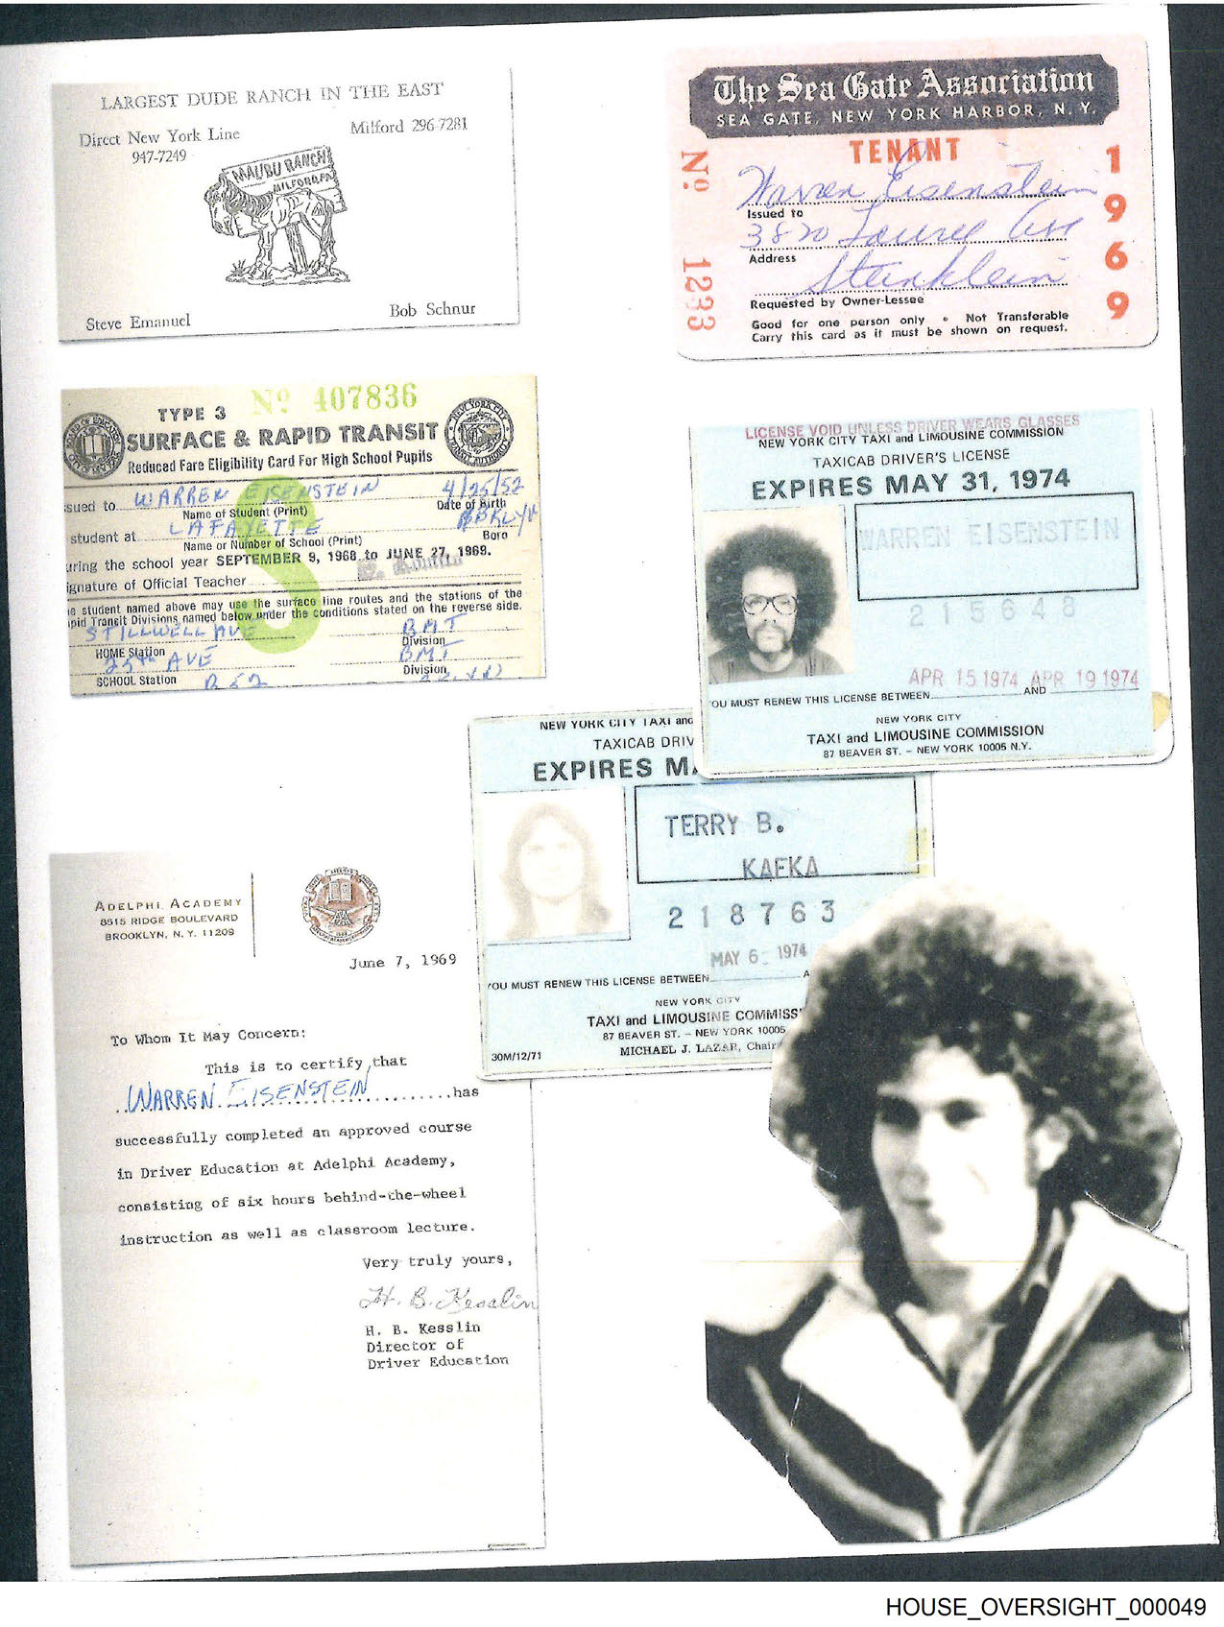 LARGEST DUDE RANCH IN THE EAST
Direct New York Line
947-7249
Milford 296-7281
MALIBU RANCH
MILFORD, PA.
Steve Emanuel
Bob Schnur
The Sea Gate Association
SEA GATE, NEW YORK HARBOR, N. Y.
TENANT
Nº 1233
1969
Warren Eisenstein
Issued to
3820 Laurel Ave
Address
Steinklein
Requested by Owner-Lessee
Good for one person only • Not Transferable
Carry this card as it must be shown on request.
Nº 407836
TYPE 3
SURFACE & RAPID TRANSIT
Reduced Fare Eligibility Card For High School Pupils
sued to WARREN EISENSTEIN 4/25/52
Name of Student (Print) Date of Birth
student at LAFAYETTE BKLYN
Name or Number of School (Print) Boro
uring the school year SEPTEMBER 9, 1968 to JUNE 27, 1969.
ignature of Official Teacher
e student named above may use the surface line routes and the stations of the
pid Transit Divisions named below under the conditions stated on the reverse side.
STILLWELL AVE BMT
HOME Station Division
25th AVE BMT
SCHOOL Station Division
S
LICENSE VOID UNLESS DRIVER WEARS GLASSES
NEW YORK CITY TAXI and LIMOUSINE COMMISSION
TAXICAB DRIVER'S LICENSE
EXPIRES MAY 31, 1974
WARREN EISENSTEIN
215648
APR 15 1974 APR 19 1974
OU MUST RENEW THIS LICENSE BETWEEN AND
NEW YORK CITY
TAXI and LIMOUSINE COMMISSION
87 BEAVER ST. – NEW YORK 10005 N.Y.
NEW YORK CITY TAXI and
TAXICAB DRIV
EXPIRES MA
TERRY B.
KAFKA
218763
MAY 6- 1974
YOU MUST RENEW THIS LICENSE BETWEEN A
NEW YORK CITY
TAXI and LIMOUSINE COMMISS
87 BEAVER ST. – NEW YORK 10005
30M/12/71 MICHAEL J. LAZAR, Chair
ADELPHI ACADEMY
8515 RIDGE BOULEVARD
BROOKLYN, N. Y. 11209
June 7, 1969
To Whom It May Concern:
This is to certify that
WARREN EISENSTEIN has
successfully completed an approved course
in Driver Education at Adelphi Academy,
consisting of six hours behind-the-wheel
instruction as well as classroom lecture.
Very truly yours,
H. B. Kesslin
H. B. Kesslin
Director of
Driver Education
HOUSE_OVERSIGHT_000049